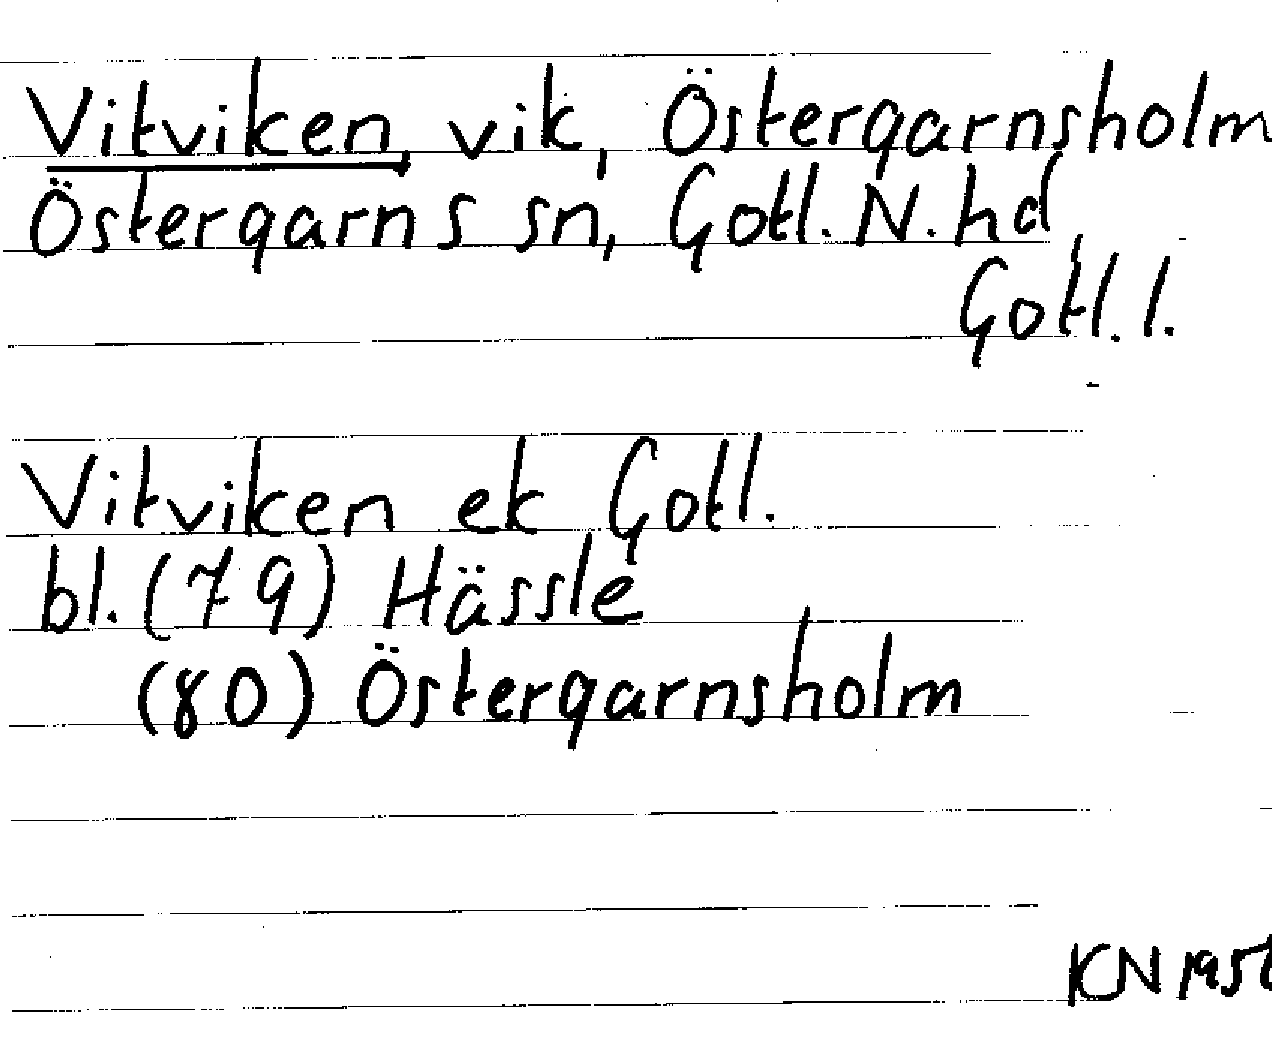 Vitviken, vik, Östergarnsholm
Östergarns sn, Gotl. N. hd,
Gotl. l.
Vitviken ek Gotl.
bl. (79) Hässle
(80) Östergarnsholm
KN